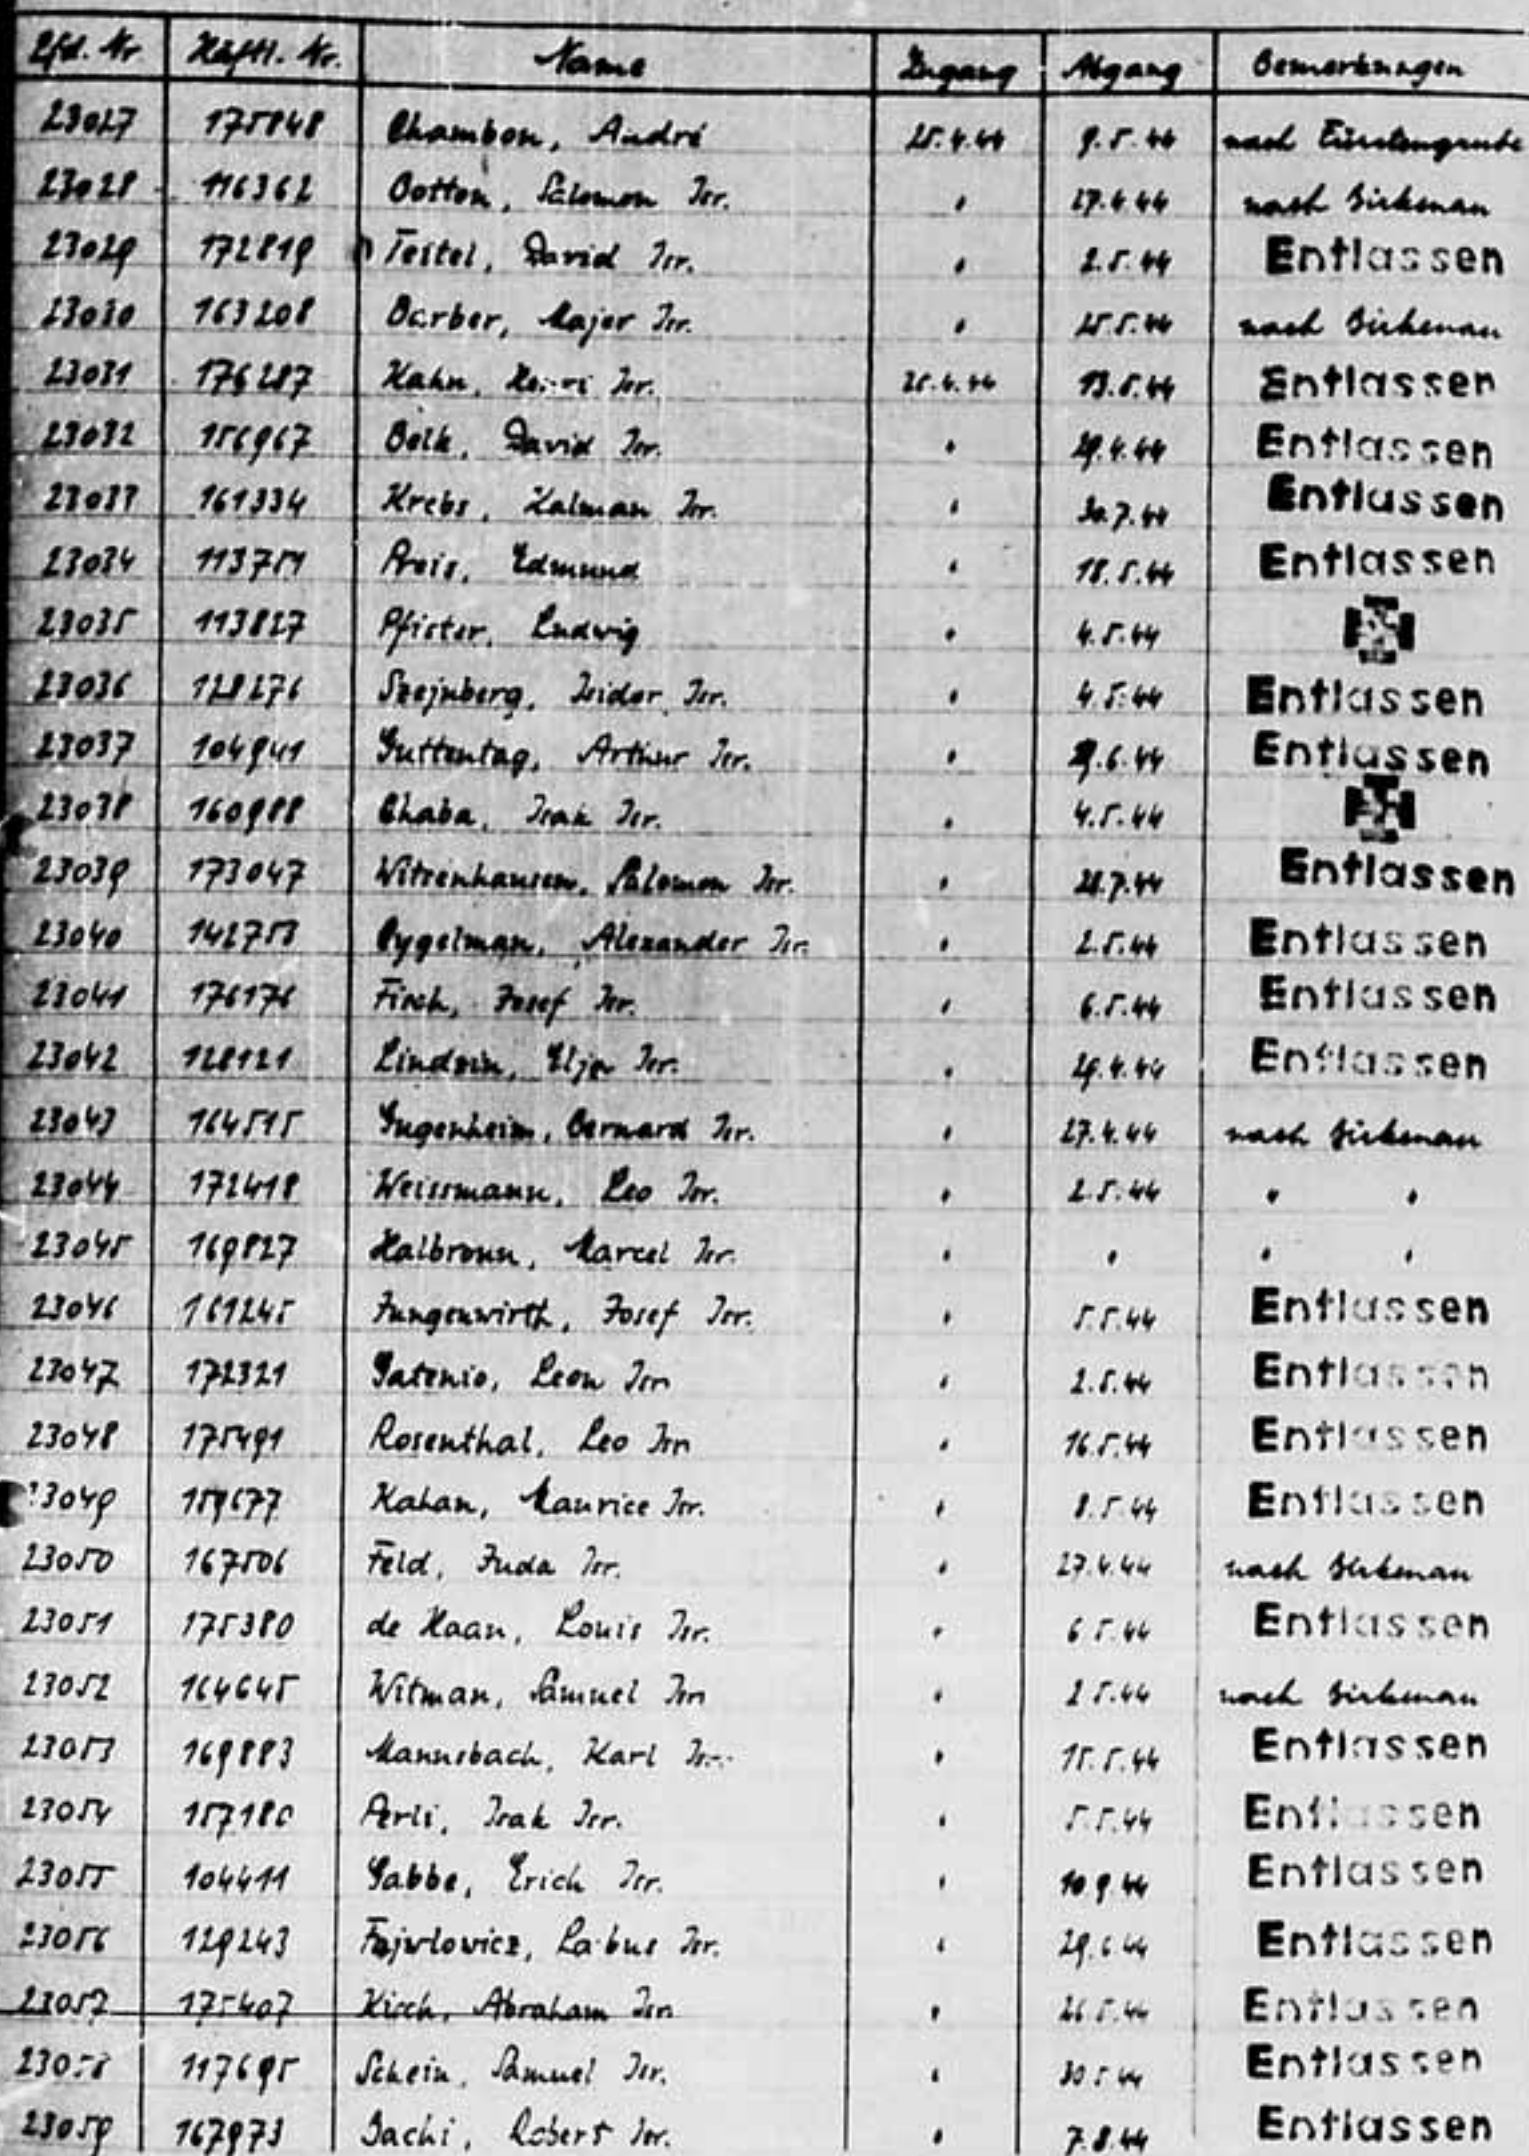 Lfd. Nr Häftl. Nr. Name Zugang Abgang Bemerkungen
23027 175848 Chambon, André 25.4.44 9.5.44 nach Fürstengrube
23028 116362 Botton, Salomon Isr. " 27.4.44 nach Birkenau
23029 172819 Teitel, David Isr. " 2.5.44 Entlassen
23030 163208 Barber, Majer Isr. " 25.5.44 nach Birkenau
23031 176287 Kahn, Isr. 26.4.44 13.5.44 Entlassen
23032 156967 Bolk, David Isr. " 29.4.44 Entlassen
23033 161334 Krebs, Kalman Isr. " 30.7.44 Entlassen
23034 113751 Preis, Edmund " 18.5.44 Entlassen
23035 113827 Pfister, Ludwig " 4.5.44
23036 128276 Szejnberg, Isidor Isr. " 4.5.44 Entlassen
23037 104941 Guttentag, Arthur Isr. " 29.6.44 Entlassen
23038 160988 Chaba, Isak Isr. " 4.5.44
23039 173047 Witzenhausen, Salomon Isr. " 28.7.44 Entlassen
23040 142753 Cygelman, Alexander Isr. " 2.5.44 Entlassen
23041 176176 Fisch, Josef Isr. " 6.5.44 Entlassen
23042 128121 Lindzin, Elja Isr. " 29.4.44 Entlassen
23043 164515 Gugenheim, Bernard Isr. " 27.4.44 nach Birkenau
23044 172418 Weissmann, Leo Isr. " 2.5.44 " "
23045 169827 Halbronn, Marcel Isr. " " " "
23046 161245 Jungenwirth, Josef Isr. " 5.5.44 Entlassen
23047 172321 Gatenio, Leon Isr. " 2.5.44 Entlassen
23048 175491 Rosenthal, Leo Isr. " 16.5.44 Entlassen
23049 159677 Kahan, Maurice Isr. " 8.5.44 Entlassen
23050 167506 Feld, Juda Isr. " 27.4.44 nach Birkenau
23051 175380 de Haan, Louis Isr. " 6.5.44 Entlassen
23052 164645 Witman, Samuel Isr. " 2.5.44 nach Birkenau
23053 169883 Mannsbach, Karl Isr. " 15.5.44 Entlassen
23054 157180 Perli, Isak Isr. " 5.5.44 Entlassen
23055 104411 Gabbe, Erich Isr. " 10.9.44 Entlassen
23056 129243 Fajwlowicz, Isr. " 29.6.44 Entlassen
23057 175407 Kisch, Abraham Isr. " 26.5.44 Entlassen
23058 117695 Schein, Samuel Isr. " 30.5.44 Entlassen
23059 167973 Robert Isr. " 7.8.44 Entlassen